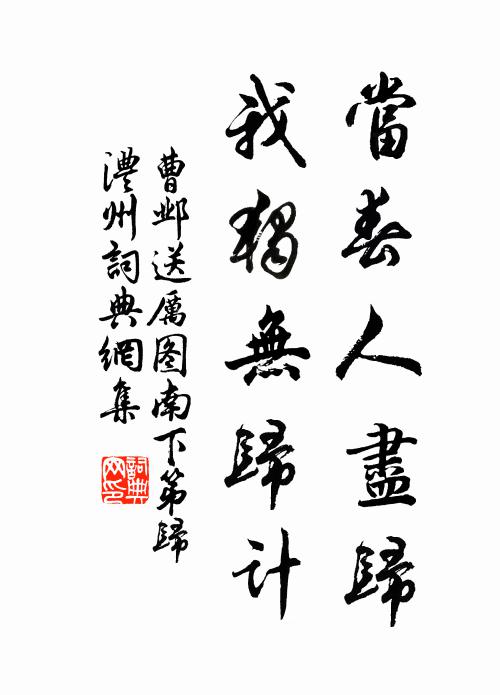 當春人盡歸
我獨無歸計
曹鄴送厲圖南下第歸
澧州詞典網集
詞典
网印